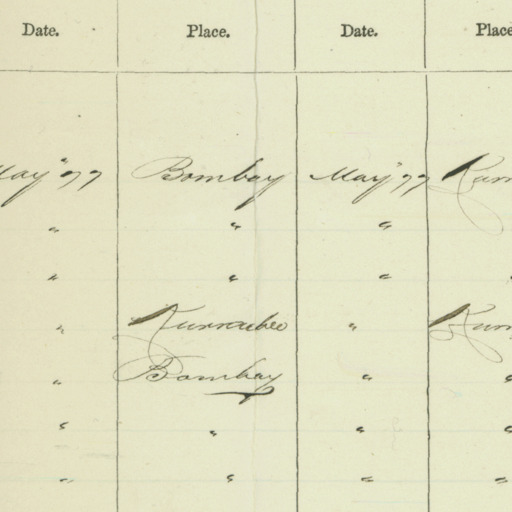 Date. Place. Date. Place
May "77 Bombay May "77
" " "
" " "
" Kurrachee "
" Bombay " "
" " " "
" " " "